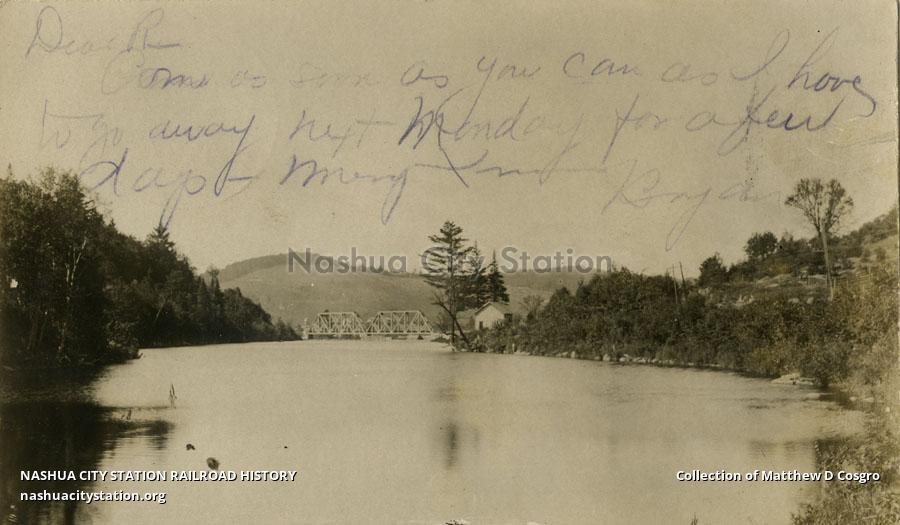 Dear R
Come as soon as you can as I have
to go away next Monday for a few
days
Bryan
Nashua City Station
NASHUA CITY STATION RAILROAD HISTORY
nashuacitystation.org
Collection of Matthew D Cosgro